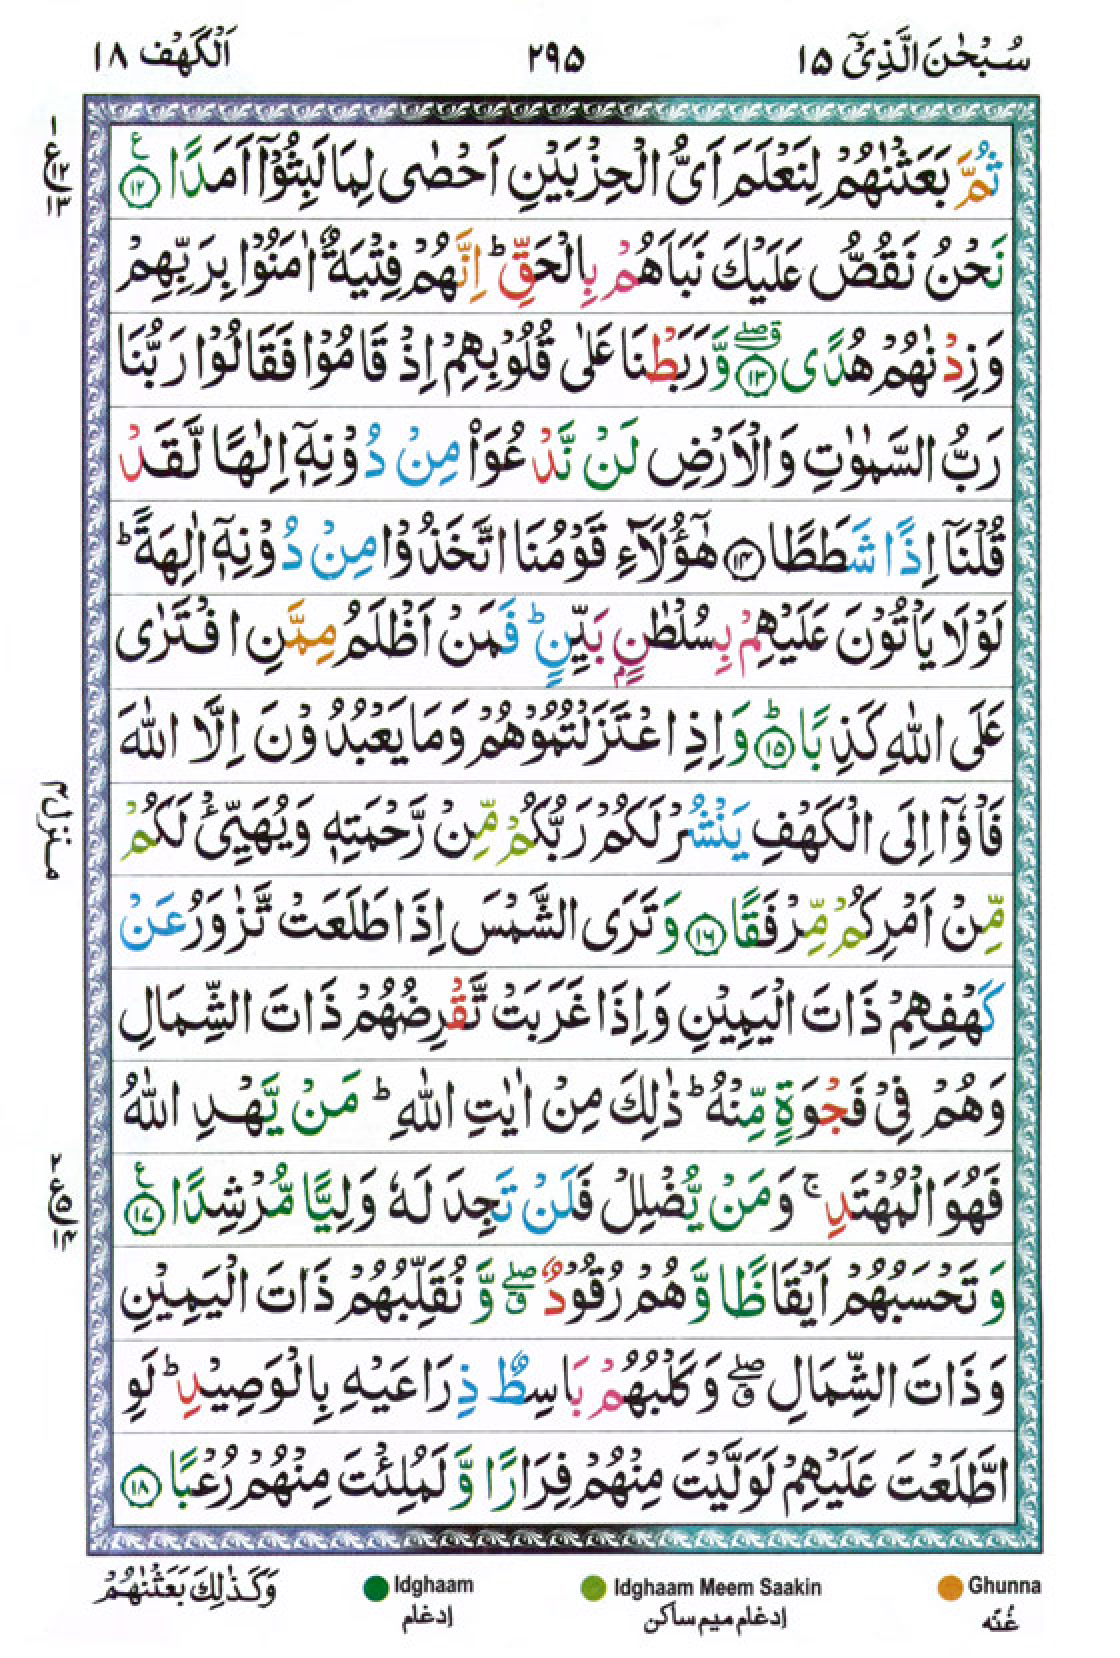 سُبْحٰنَ الَّذِیْۤ ۱۵
۲۹۵
اَلْكَهْف ۱۸
ثُمَّ بَعَثْنٰهُمْ لِنَعْلَمَ اَیُّ الْحِزْبَیْنِ اَحْصٰی لِمَا لَبِثُوْۤا اَمَدًا ۱۲ ع
۱ ع ۱۲ ۱۳
نَحْنُ نَقُصُّ عَلَیْكَ نَبَاَهُمْ بِالْحَقِّ ؕ اِنَّهُمْ فِتْیَةٌ اٰمَنُوْا بِرَبِّهِمْ
وَزِدْنٰهُمْ هُدًی ۱۳ ۖۗ وَّ رَبَطْنَا عَلٰی قُلُوْبِهِمْ اِذْ قَامُوْا فَقَالُوْا رَبُّنَا
رَبُّ السَّمٰوٰتِ وَالْاَرْضِ لَنْ نَّدْعُوَا۠ مِنْ دُوْنِهٖۤ اِلٰهًا لَّقَدْ
قُلْنَاۤ اِذًا شَطَطًا ۱۴ هٰۤؤُلَآءِ قَوْمُنَا اتَّخَذُوْا مِنْ دُوْنِهٖۤ اٰلِهَةً ؕ
لَوْلَا یَاْتُوْنَ عَلَیْهِمْ بِسُلْطٰنٍۭ بَیِّنٍ ؕ فَمَنْ اَظْلَمُ مِمَّنِ افْتَرٰی
عَلَی اللّٰهِ كَذِبًا ؕ ۱۵ وَ اِذِ اعْتَزَلْتُمُوْهُمْ وَمَا یَعْبُدُوْنَ اِلَّا اللّٰهَ
فَاْوٗۤا اِلَی الْكَهْفِ یَنْشُرْ لَكُمْ رَبُّكُمْ مِّنْ رَّحْمَتِهٖ وَیُهَیِّئْ لَكُمْ
منزل ۴
مِّنْ اَمْرِكُمْ مِّرْفَقًا ۱۶ وَ تَرَی الشَّمْسَ اِذَا طَلَعَتْ تَّزٰوَرُ عَنْ
كَهْفِهِمْ ذَاتَ الْیَمِیْنِ وَ اِذَا غَرَبَتْ تَّقْرِضُهُمْ ذَاتَ الشِّمَالِ
وَهُمْ فِیْ فَجْوَةٍ مِّنْهُ ؕ ذٰلِكَ مِنْ اٰیٰتِ اللّٰهِ ؕ مَنْ یَّهْدِ اللّٰهُ
فَهُوَ الْمُهْتَدِ ۚ وَمَنْ یُّضْلِلْ فَلَنْ تَجِدَ لَهٗ وَلِیًّا مُّرْشِدًا ۱۷ ع
۲ ع ۵ ۱۴
وَ تَحْسَبُهُمْ اَیْقَاظًا وَّ هُمْ رُقُوْدٌ ۖۗ وَّ نُقَلِّبُهُمْ ذَاتَ الْیَمِیْنِ
وَ ذَاتَ الشِّمَالِ ۖۗ وَ كَلْبُهُمْ بَاسِطٌ ذِرَاعَیْهِ بِالْوَصِیْدِ ؕ لَوِ
اطَّلَعْتَ عَلَیْهِمْ لَوَلَّیْتَ مِنْهُمْ فِرَارًا وَّ لَمُلِئْتَ مِنْهُمْ رُعْبًا ۱۸
وَكَذٰلِكَ بَعَثْنٰهُمْ
Idghaam
ادغام
Idghaam Meem Saakin
ادغام میم ساکن
Ghunna
غُنّه